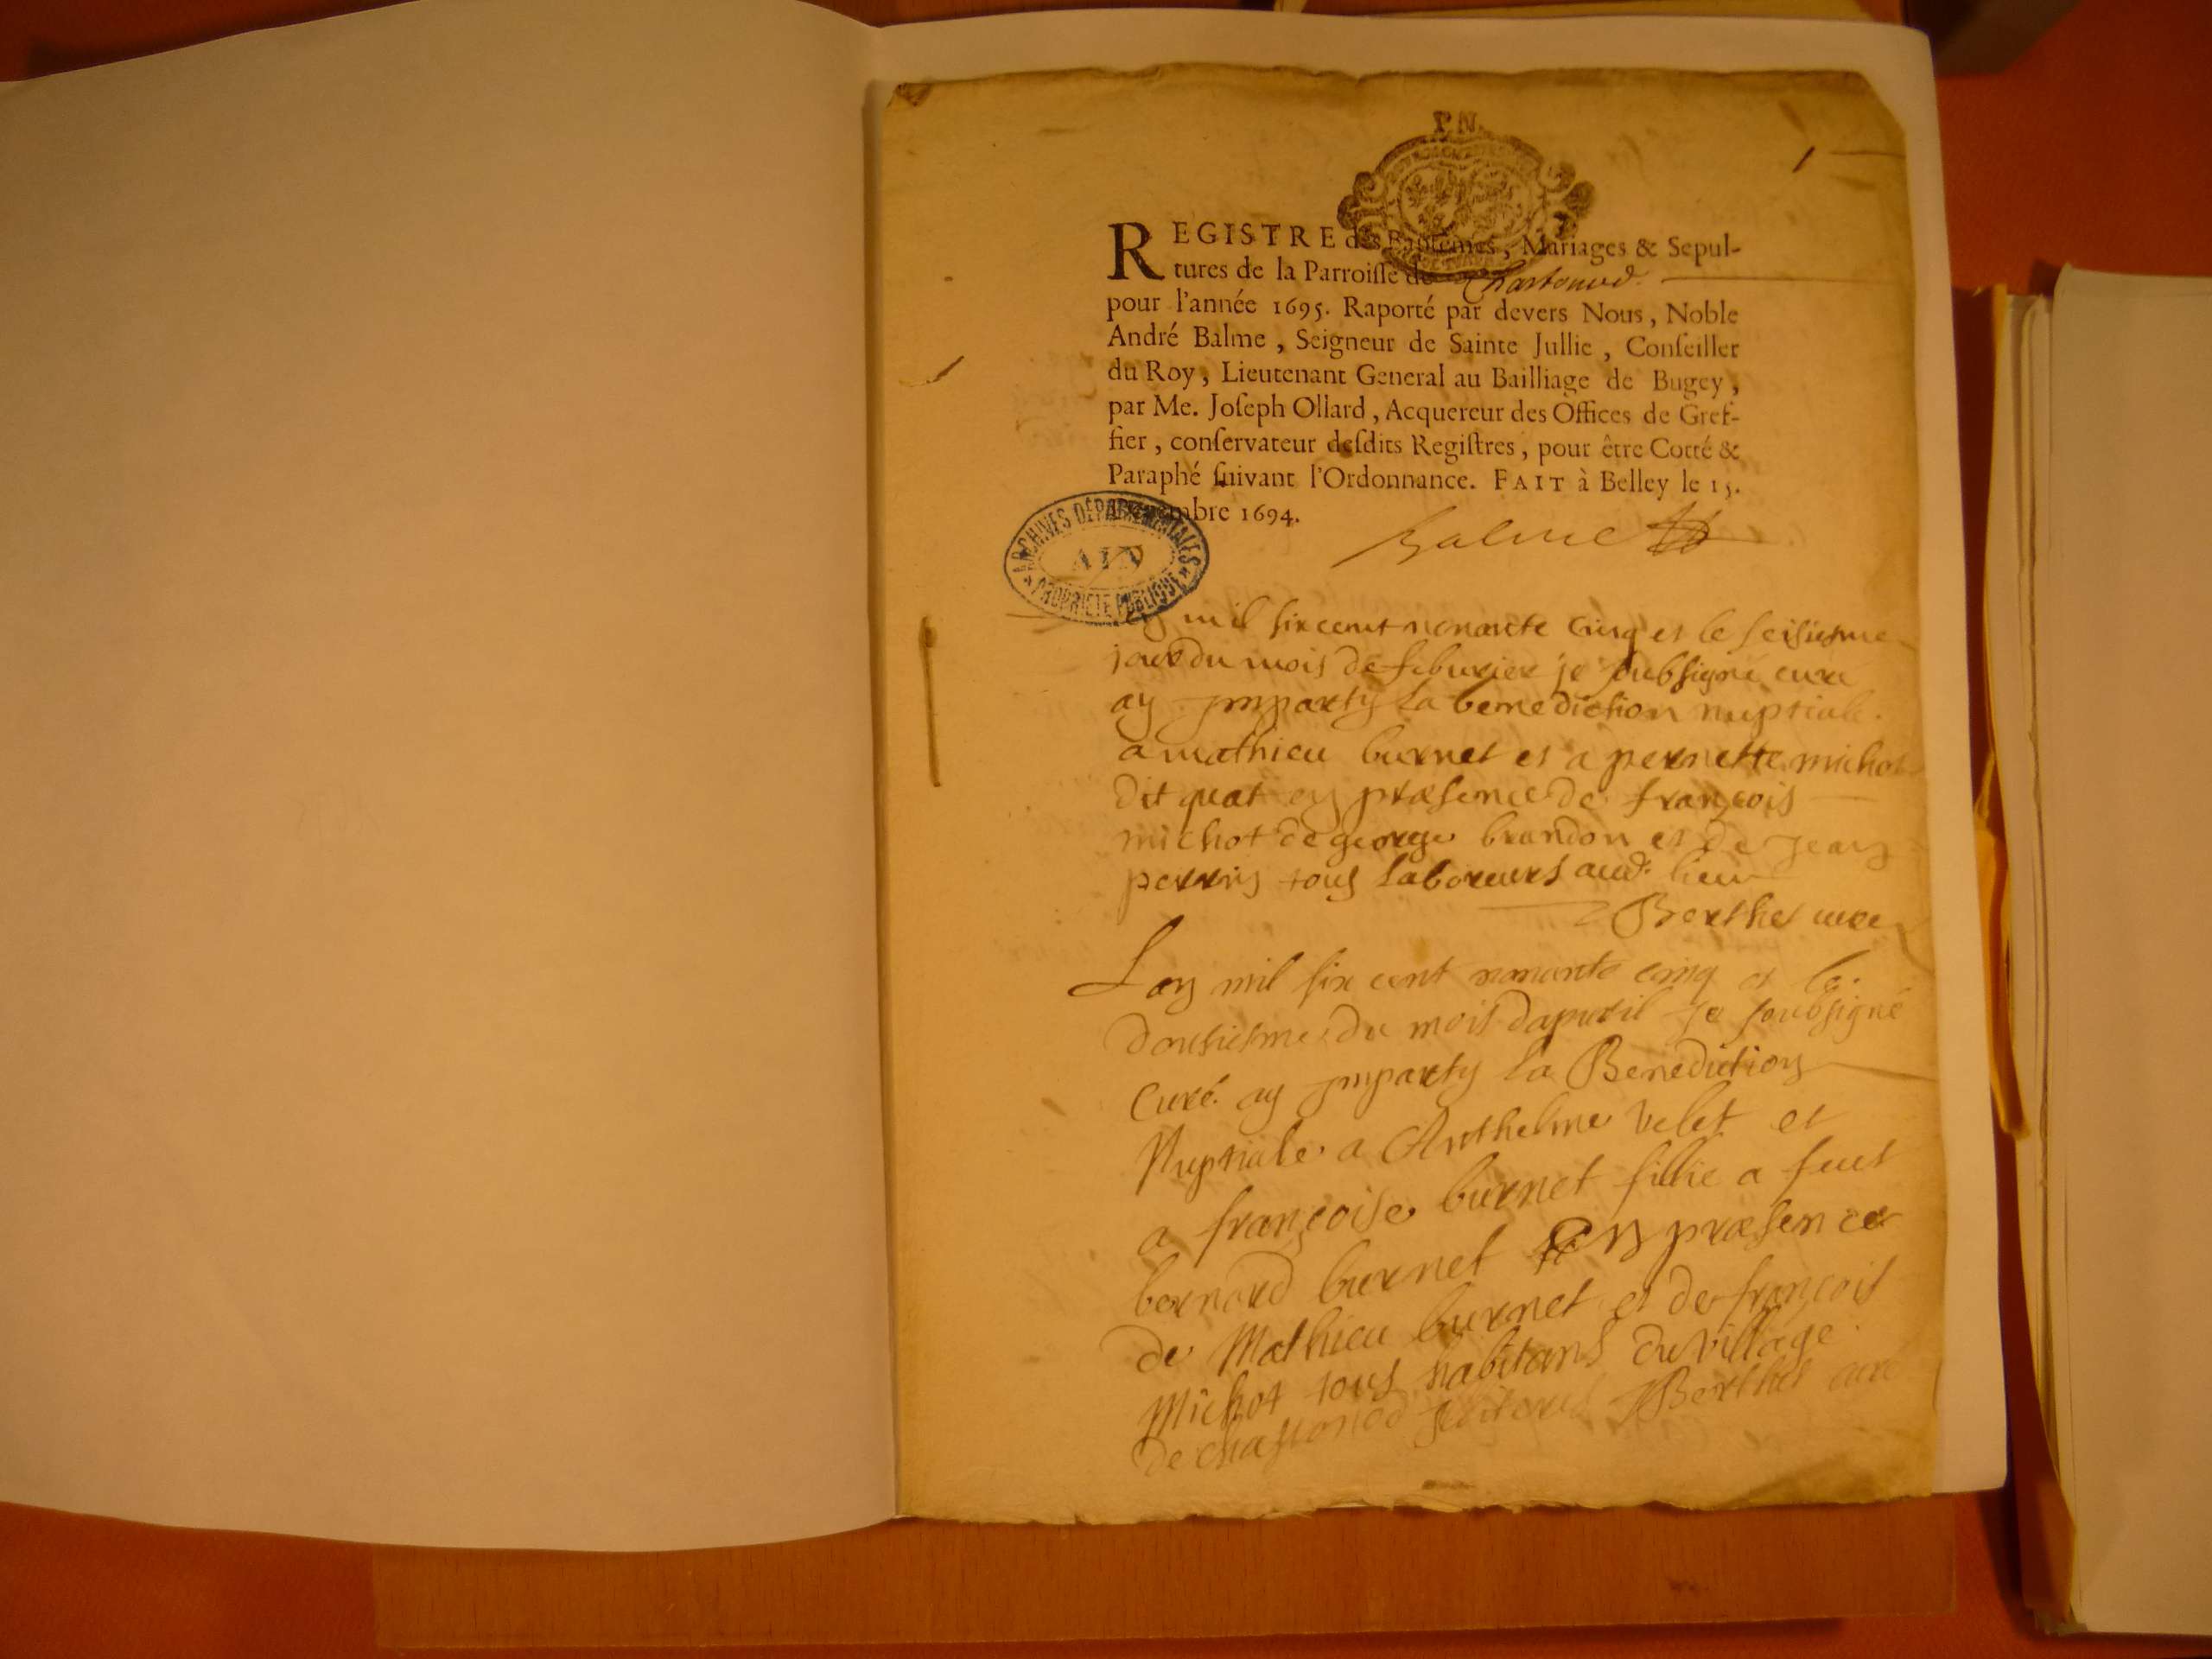 P N.
1
REGISTRE des Baptêmes, Mariages & Sepul-
tures de la Parroisse de Chastonod
pour l'année 1695. Raporté par devers Nous, Noble
André Balme, Seigneur de Sainte Jullie, Conseiller
du Roy, Lieutenant General au Bailliage de Bugey,
par Me. Joseph Ollard, Acquereur des Offices de Gref-
fier, conservateur desdits Registres, pour être Cotté &
Paraphé suivant l'Ordonnance. FAIT à Belley le 15.
mbre 1694.
Balme
ARCHIVES DÉPARTEMENTALES
AIN
PROPRIÉTÉ PUBLIQUE
mil six cent nonante cinq et le seisiesme
jour du mois de feburier je soubsigné curé
ay jmparty la benediction nuptiale
a mathieu burnet et a pernette michot
dit quat en præsence de françois
michot de george brandon et de jean
perrin tous laboreurs aud. lieu
Berthet curé
Lan mil six cent nonante cinq et le
dousiesme du mois dapuril Je soubsigné
Curé ay jmparty la Benediction
Nuptiale a Anthelme Velet et
a françoise burnet fillie a feut
bernard burnet En præsence
de Mathieu burnet et de françois
Michot tous habitans du village
de chastonod Berthet curé